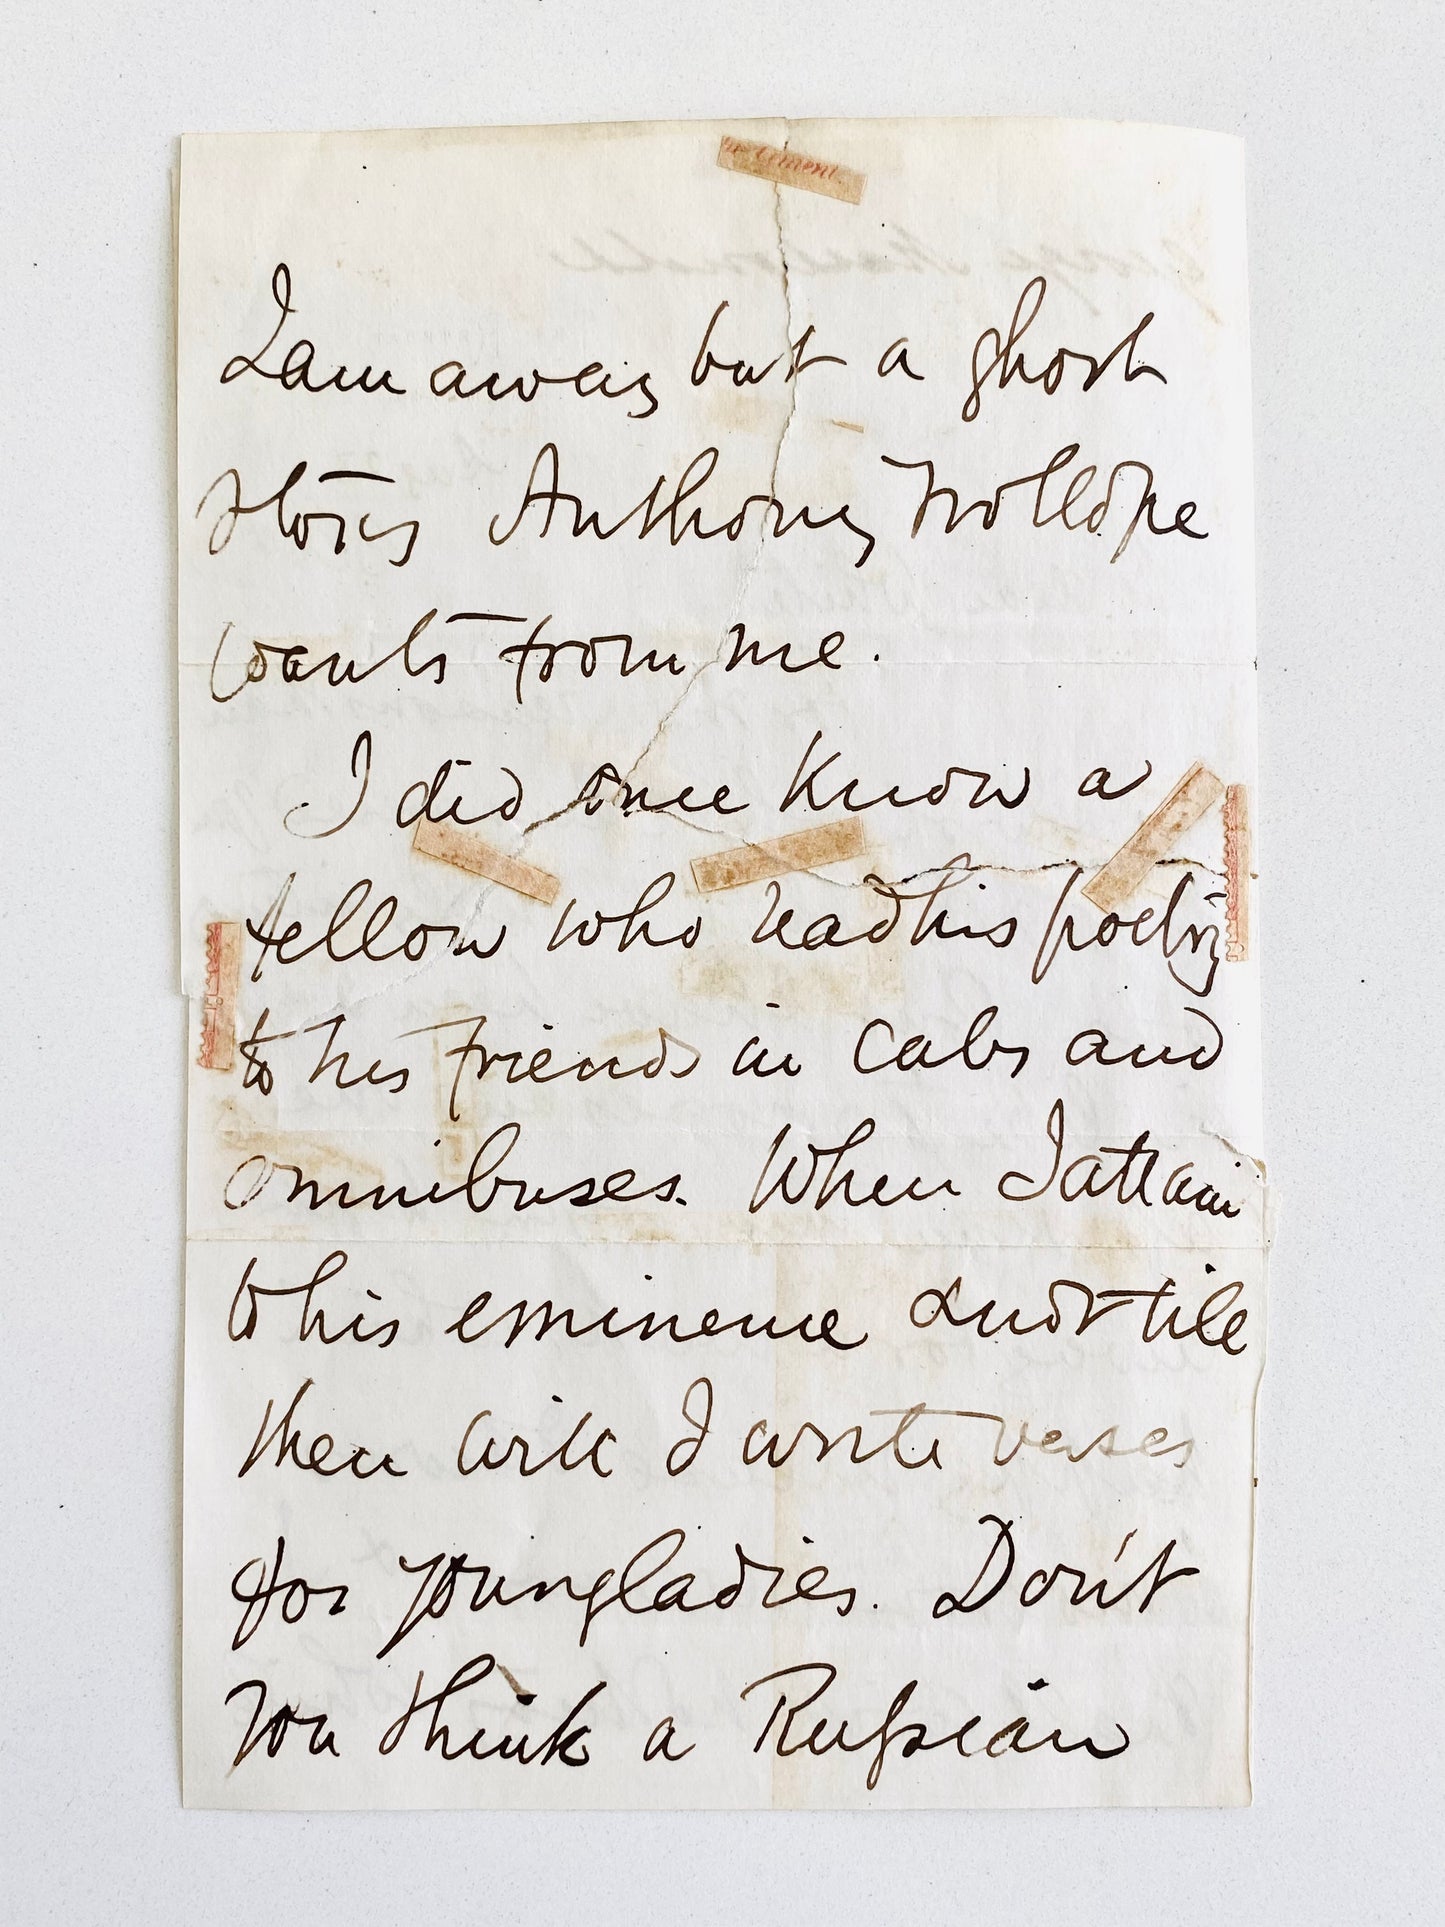 I am away but a ghost
story Anthony Trollope
wants from me.
I did once know a
fellow who read his poetry
to his friends in cabs and
omnibuses. When I attain
to his eminence & not till
then will I write verses
for young ladies. Don't
You think a Russian